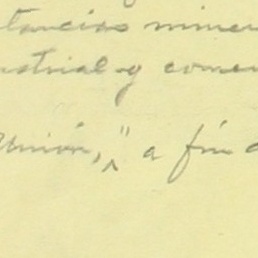 tancias miner
ustrial y comer
Unión," a fin d